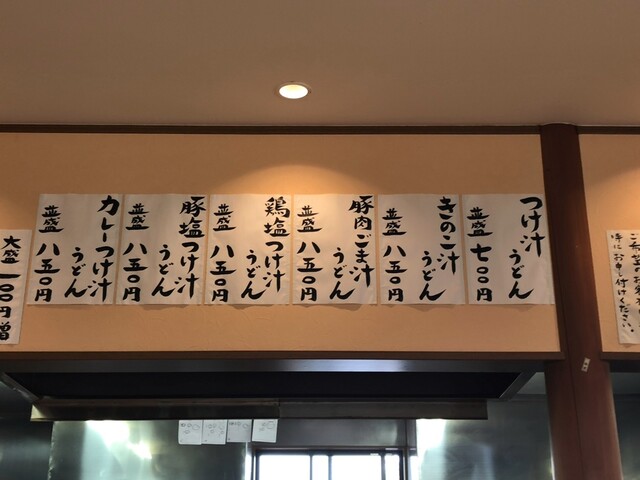 つけ汁
うどん
並盛 七〇〇円
きのこ汁
うどん
並盛 八五〇円
豚肉ごま汁
うどん
並盛 八五〇円
鶏塩つけ汁
うどん
並盛 八五〇円
豚塩つけ汁
うどん
並盛 八五〇円
カレーつけ汁
うどん
並盛 八五〇円
大盛 一〇〇円増
時にお申し付けください。